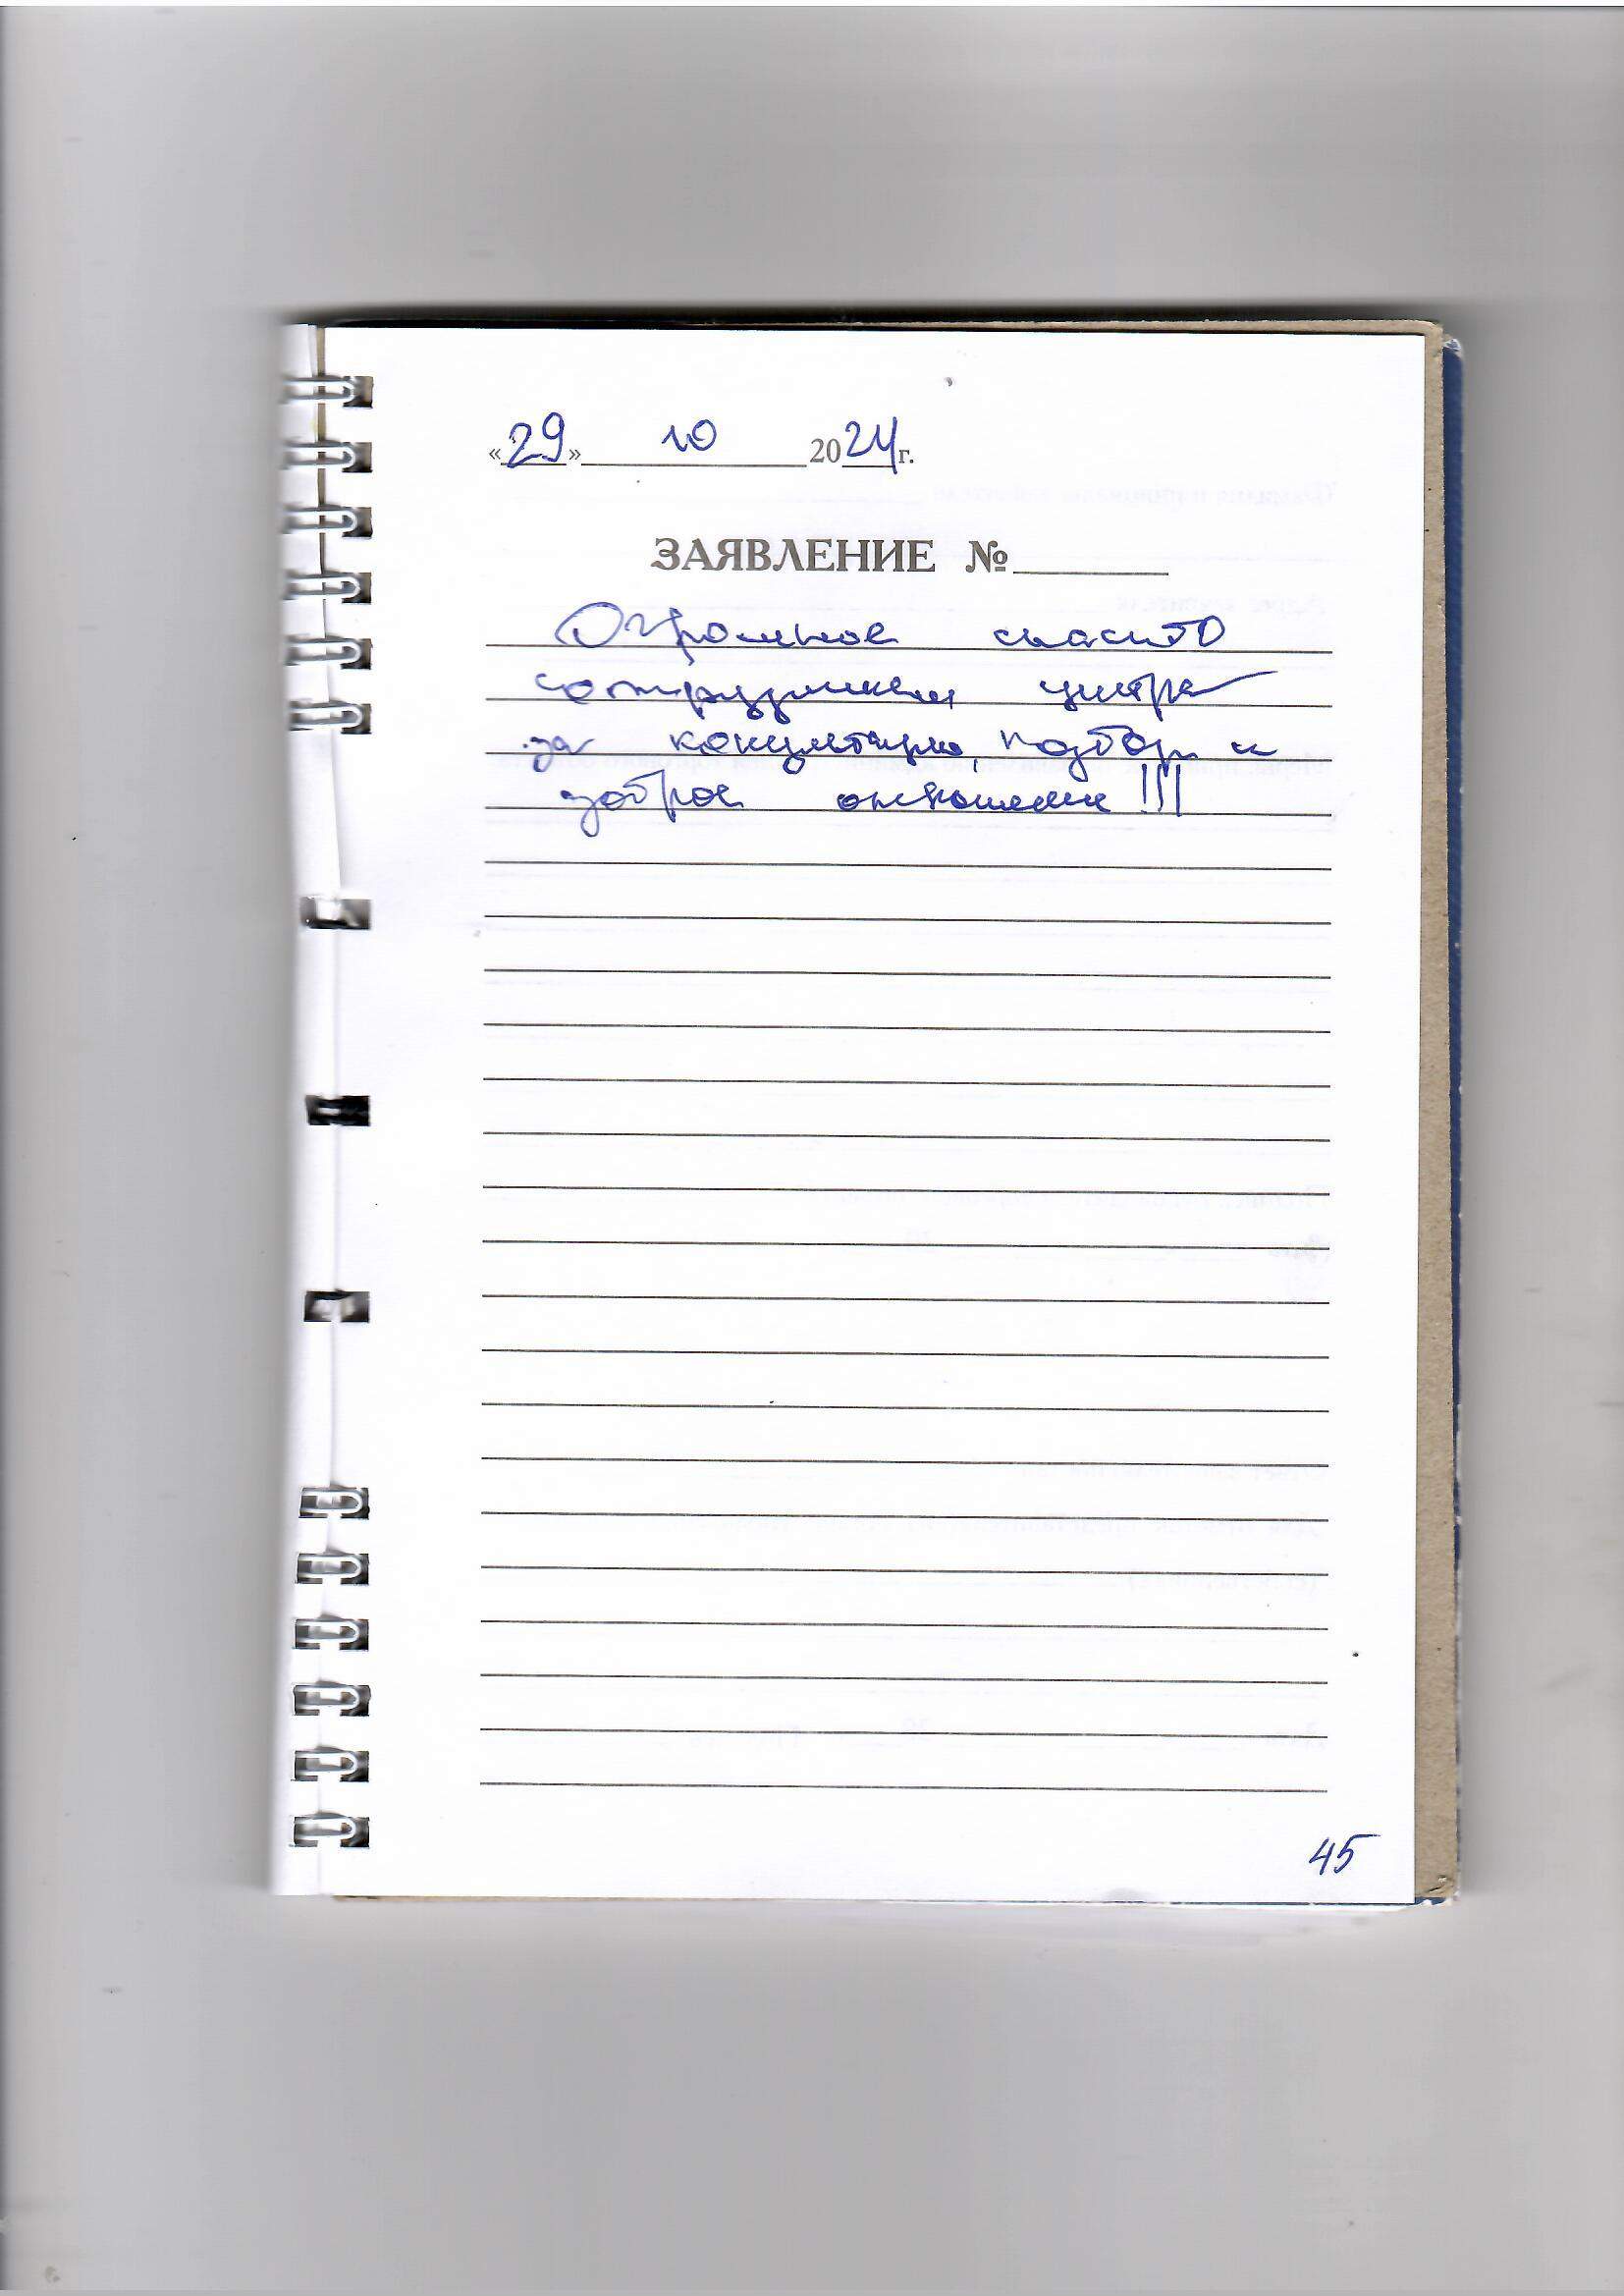 «29» 10 2024г.
ЗАЯВЛЕНИЕ №
Огромное спасибо
сотрудникам центра
за консультацию, подбор и
доброе отношение!!!
45